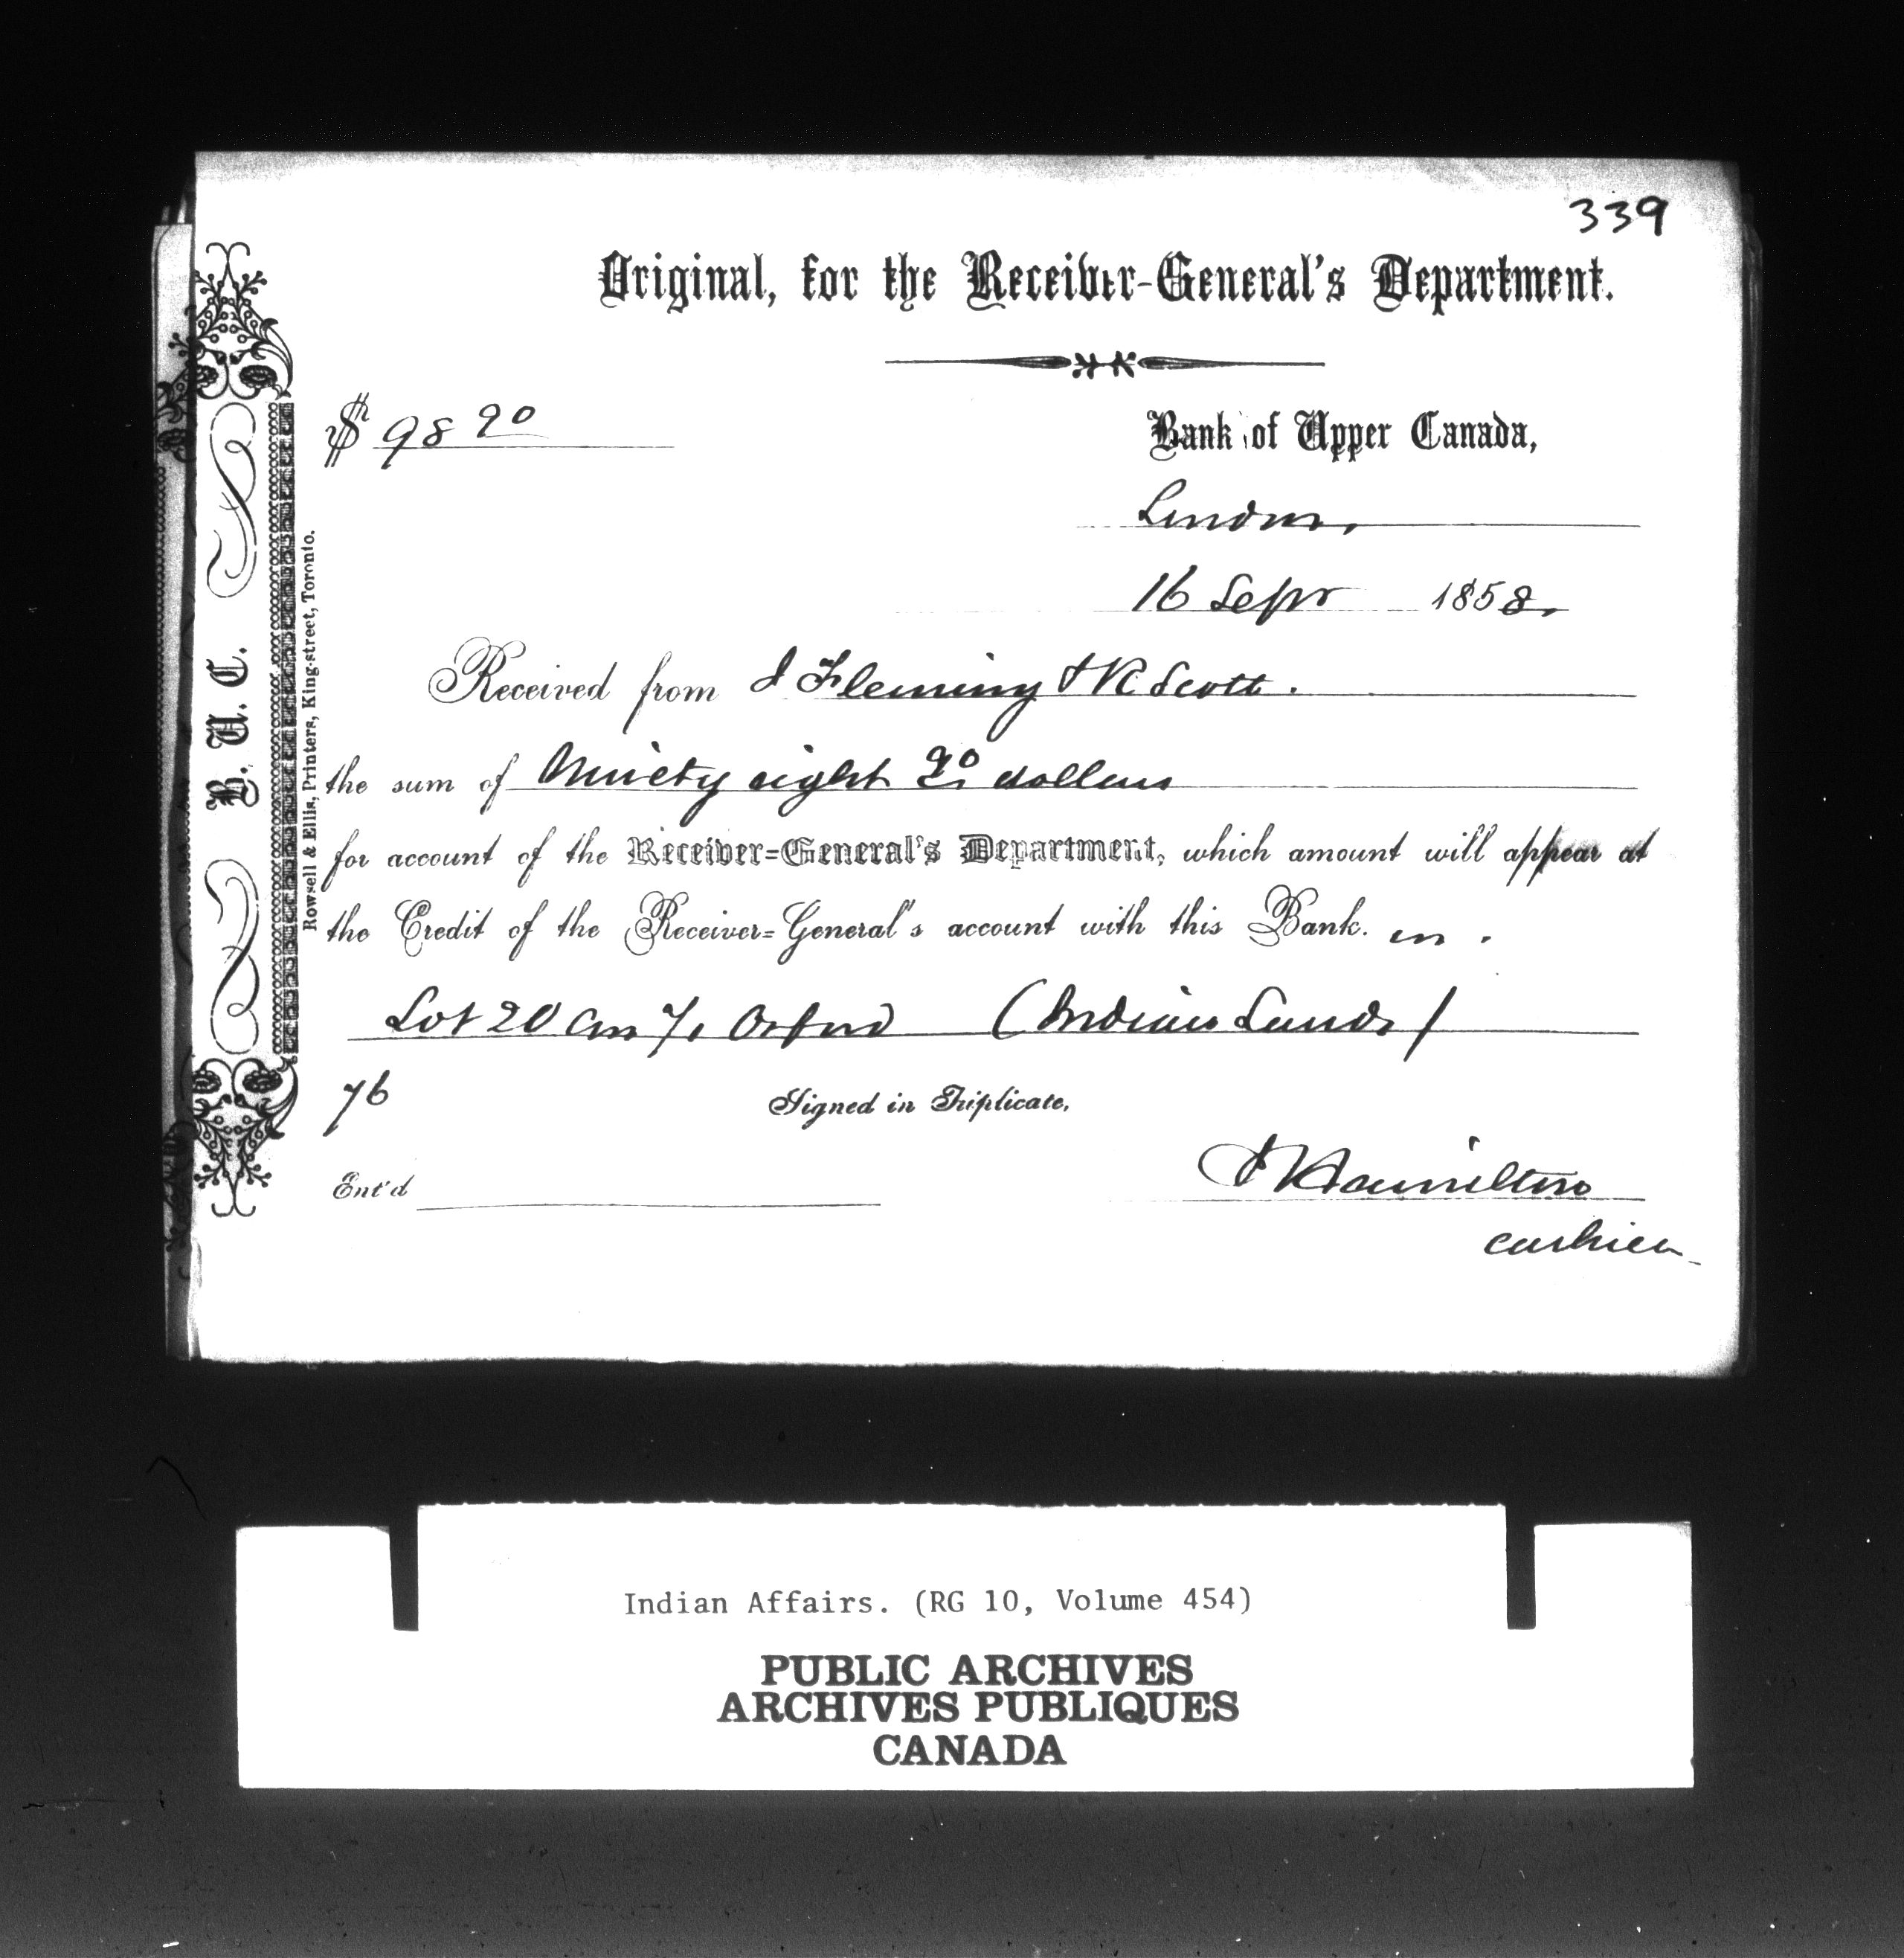 339
Original, for the Receiver-General's Department.
$ 98 90
Bank of Upper Canada,
London,
16 Sepr 1858.
Received from J Fleming & R Scott.
the sum of Ninety eight 90 dollars
for account of the Receiver-General's Department, which amount will appear at
the Credit of the Receiver-General's account with this Bank. on.
Lot 20 Con 7, Orford (Indian Lands)
76
Signed in Triplicate,
Ent'd
J Hamilton
cashier
B. U. C.
Rowsell & Ellis, Printers, King-street, Toronto.
Indian Affairs. (RG 10, Volume 454)
PUBLIC ARCHIVES
ARCHIVES PUBLIQUES
CANADA